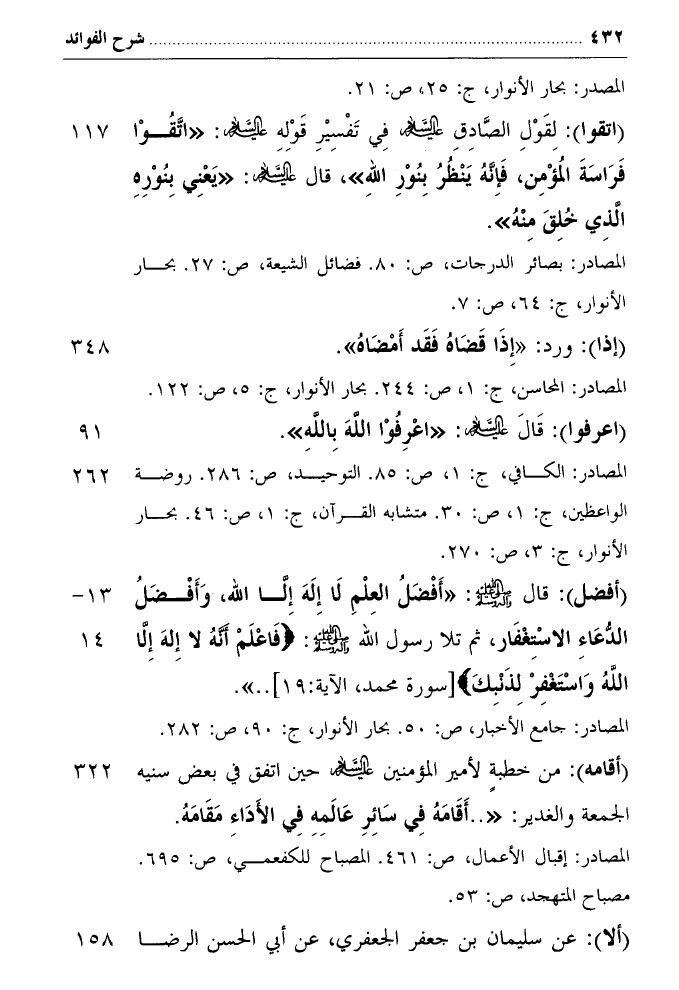 ٤٣٢ ........................................................................ شرح الفوائد
المصدر: بحار الأنوار، ج: ٢٥، ص: ٢١.
(اتقوا): لِقَوْلِ الصَّادِقِ عليه السلام فِي تَفْسِيْرِ قَوْلِهِ عليه السلام: «اتَّقُــوْا ١١٧
فَرَاسَةَ الْمُؤْمِنِ، فَإِنَّهُ يَنْظُرُ بِنُوْرِ اللهِ»، قال عليه السلام: «يَعْنِي بِنُوْرِهِ
الَّذِي خُلِقَ مِنْهُ».
المصادر: بصائر الدرجات، ص: ٨٠. فضائل الشيعة، ص: ٢٧. بحــار
الأنوار، ج: ٦٤، ص: ٧.
(إذا): ورد: «إِذَا قَضَاهُ فَقَد أَمْضَاهُ». ٣٤٨
المصادر: المحاسن، ج: ١، ص: ٢٤٤. بحار الأنوار، ج: ٥، ص: ١٢٢.
(اعرفوا): قَالَ عليه السلام: «اعْرِفُوْا اللَّهَ بِاللَّهِ». ٩١
المصادر: الكــافي، ج: ١، ص: ٨٥. التوحيــد، ص: ٢٨٦. روضــة ٢٦٢
الواعظين، ج: ١، ص: ٣٠. متشابه القــرآن، ج: ١، ص: ٤٦. بحــار
الأنوار، ج: ٣، ص: ٢٧٠.
(أفضل): قال صلى الله عليه وآله: «أَفْضَلُ العِلْمِ لَا إِلَهَ إِلَّــا الله، وَأَفْــضَلُ ١٣-
الدُّعَاءِ الاسْتِغْفَار، ثم تلا رسول الله صلى الله عليه وآله: ﴿فَاعْلَمْ أَنَّهُ لا إِلهَ إِلَّا ١٤
اللَّهُ وَاسْتَغْفِرْ لِذَنْبِكَ﴾[سورة محمد، الآية:١٩]..».
المصادر: جامع الأخبار، ص: ٥٠. بحار الأنوار، ج: ٩٠، ص: ٢٨٢.
(أقامه): من خطبةٍ لأمير المؤمنين عليه السلام حين اتفق في بعض سنيه ٣٢٢
الجمعة والغدير: «..أَقَامَهُ فِي سَائِرِ عَالَمِهِ فِي الأَدَاءِ مَقَامَهُ.
المصادر: إقبال الأعمال، ص: ٤٦١. المصباح للكفعمــي، ص: ٦٩٥.
مصباح المتهجد، ص: ٥٣.
(ألا): عن سليمان بن جعفر الجعفري، عن أبي الحسن الرضــا ١٥٨